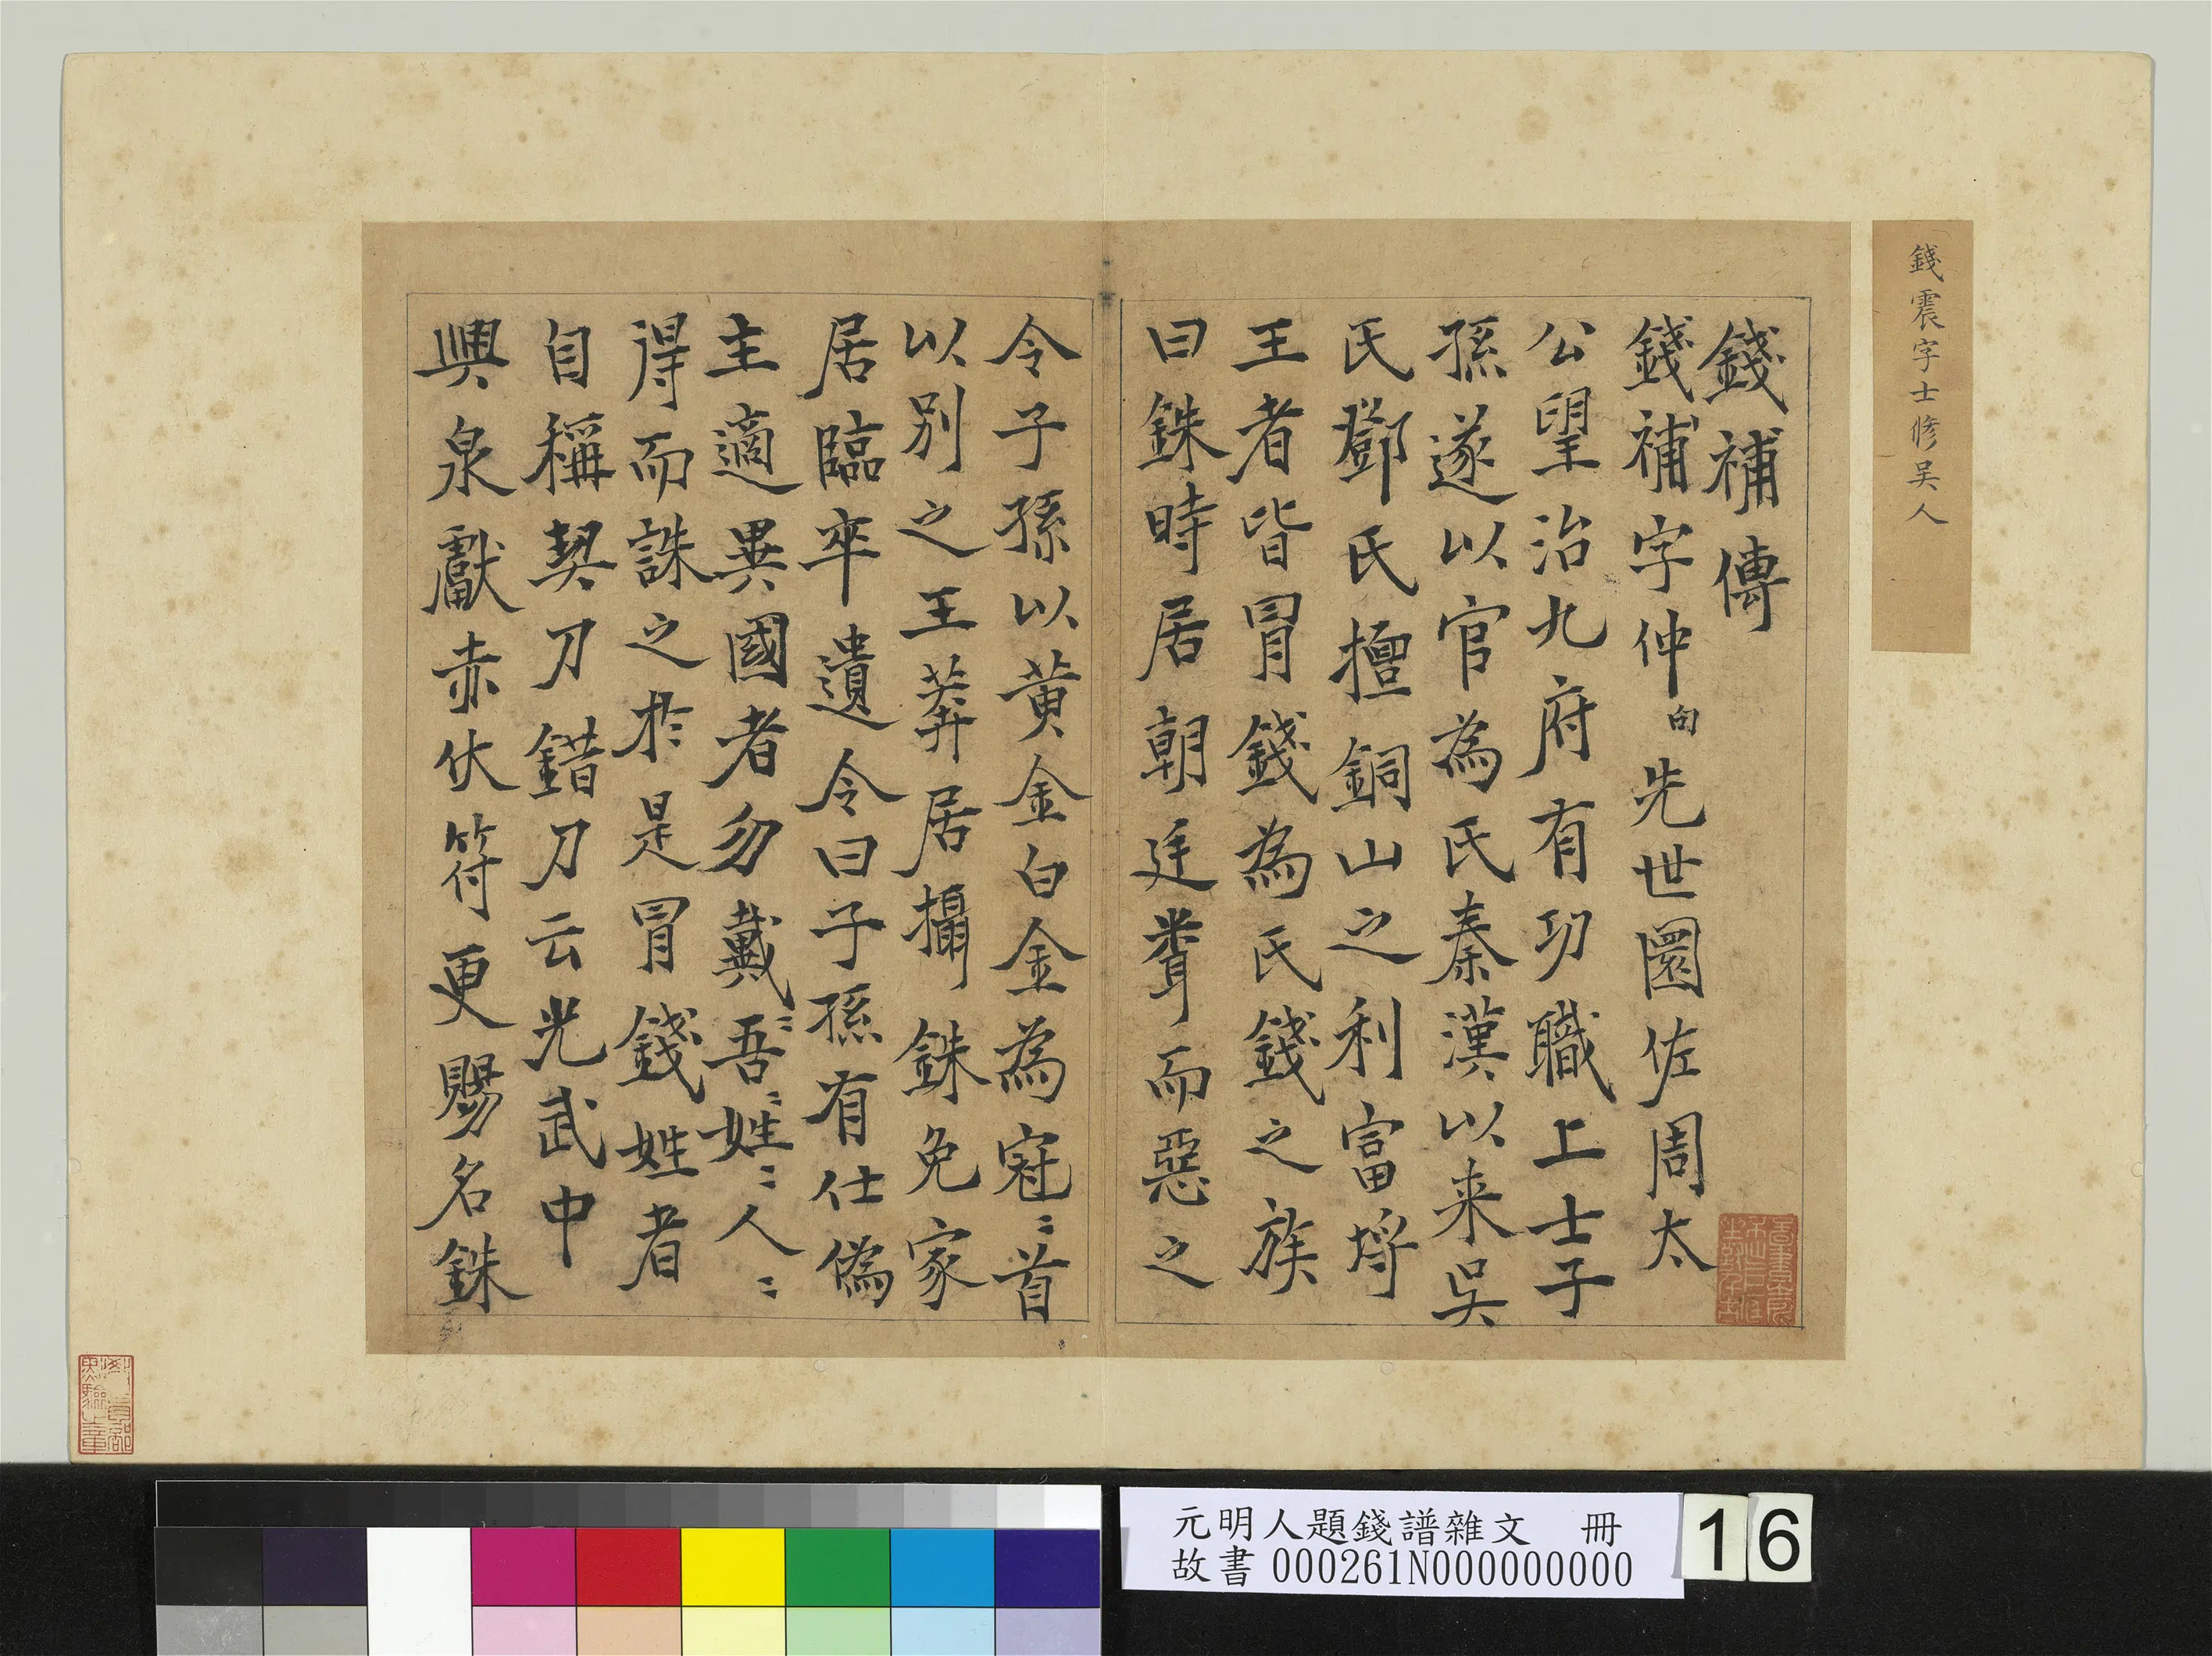 錢震字士修吴人
錢補傳
錢補字仲向先世圜佐周太
公望治九府有功職上士子
孫遂以官為氏秦漢以来吴
氏鄧氏擅銅山之利富埒
王者皆冒錢為氏錢之族
曰銖時居朝廷聳而惡之
令子孫以黄金白金為冠〻首
以别之王莽居攝銖免家
居臨卒遺令曰子孫有仕偽
主適異國者勿戴〻吾〻姓〻人〻
得而誅之於是冒錢姓者
自稱契刀錯刀云光武中
興泉獻赤伏符更賜名銖
元明人題錢譜雜文 冊
故書 000261N000000000
16